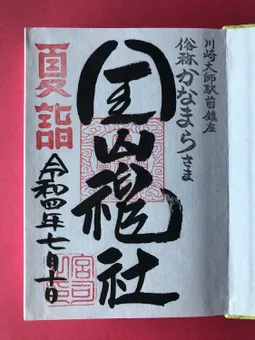 川崎大師駅前鎮座
俗称かなまらさま
金山神社
夏詣
令和四年七月十日
宮司
之印